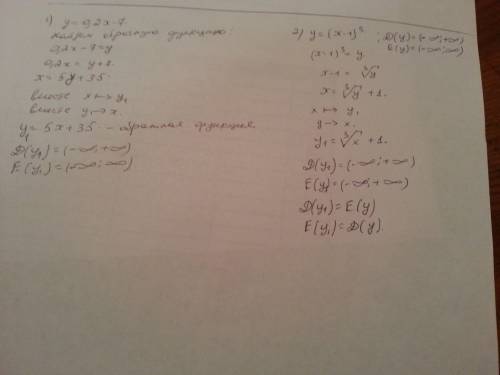 1) y=0,2x-7.
Найдем обратную функцию:
0,2x-7=y
0,2x=y+7.
x=5y+35.
вместо x↦y₁
вместо y↦x.
y₁=5x+35 - обратная функция.
D(y₁)=(-∞;+∞)
E(y₁)=(-∞;∞)
2) y=(x-1)³ ; D(y)=(-∞;+∞)
E(y)=(-∞;∞)
(x-1)³=y.
x-1=∛y
x=∛y+1.
x↦y₁
y→x.
y₁=∛x+1.
D(y₁)=(-∞;+∞)
E(y₁)=(-∞;+∞)
D(y₁)=E(y)
E(y₁)=D(y).